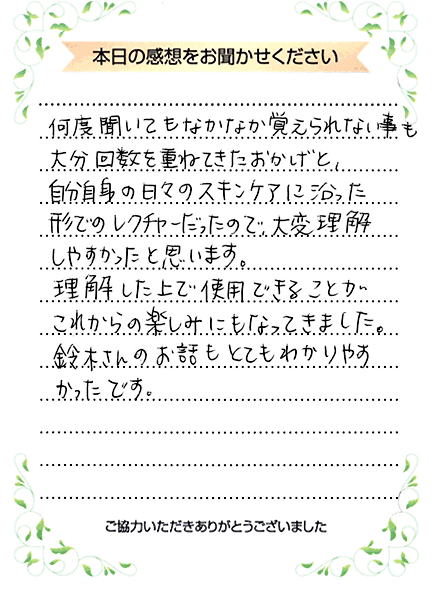 本日の感想をお聞かせください
何度聞いてもなかなか覚えられない事も
大分回数を重ねてきたおかげと、
自分自身の日々のスキンケアに沿った
形でのレクチャーだったので、大変理解
しやすかったと思います。
理解した上で使用できることが
これからの楽しみにもなってきました。
鈴木さんのお話もとてもわかりやす
かったです。
ご協力いただきありがとうございました